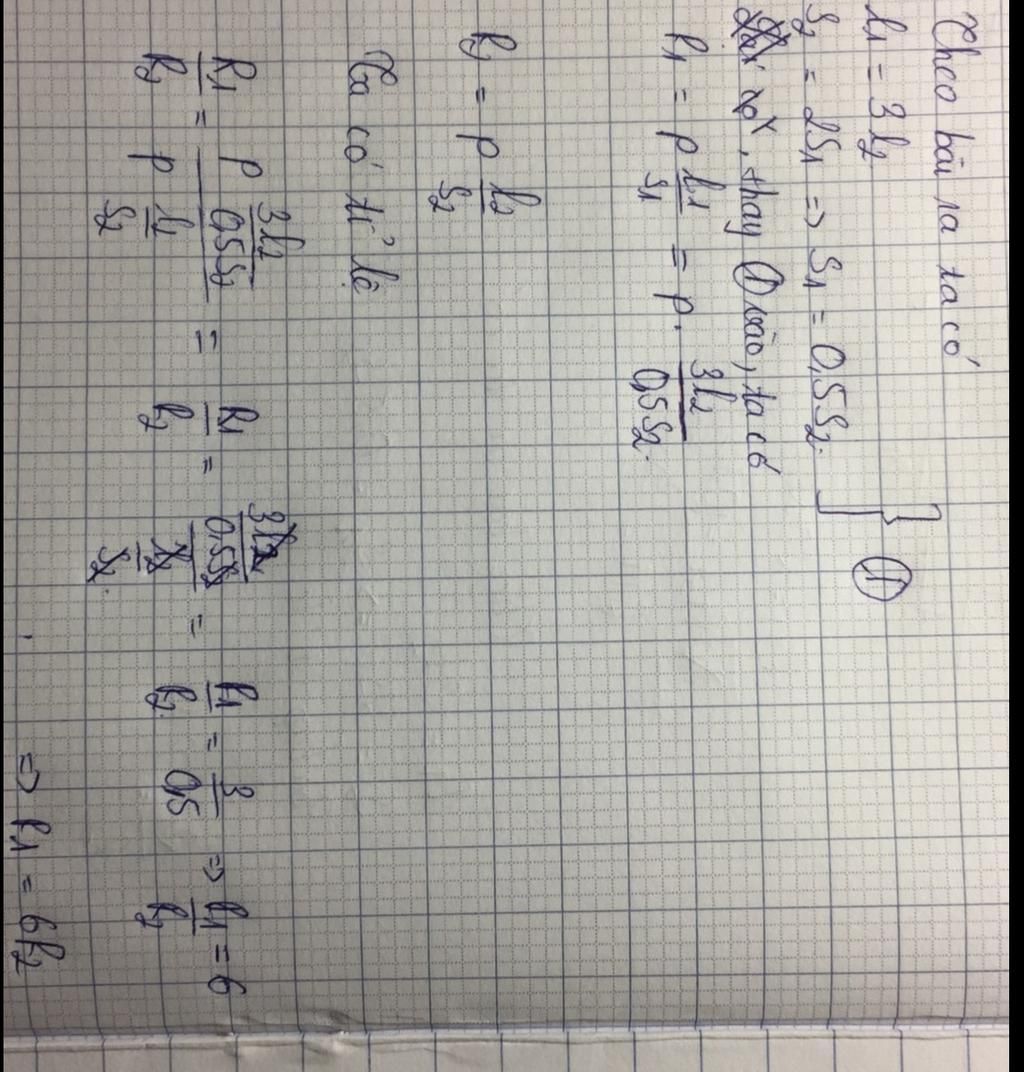 Theo bài ra ta có
l1 = 3l2
S2 = 2S1 => S1 = 0,5S2. } (1)
, thay (1) vào, ta có
R1 = ρ l1/S1 = ρ. 3l2/0,5S2.
R2 = ρ l2/S2
Ta có tỉ lệ
R1/R2 = (ρ 3l2/0,5S2)/(ρ l2/S2) = R1/R2 = (3l2/0,5S2)/(l2/S2) = R1/R2 = 3/0,5 => R1/R2 = 6
=> R1 = 6R2